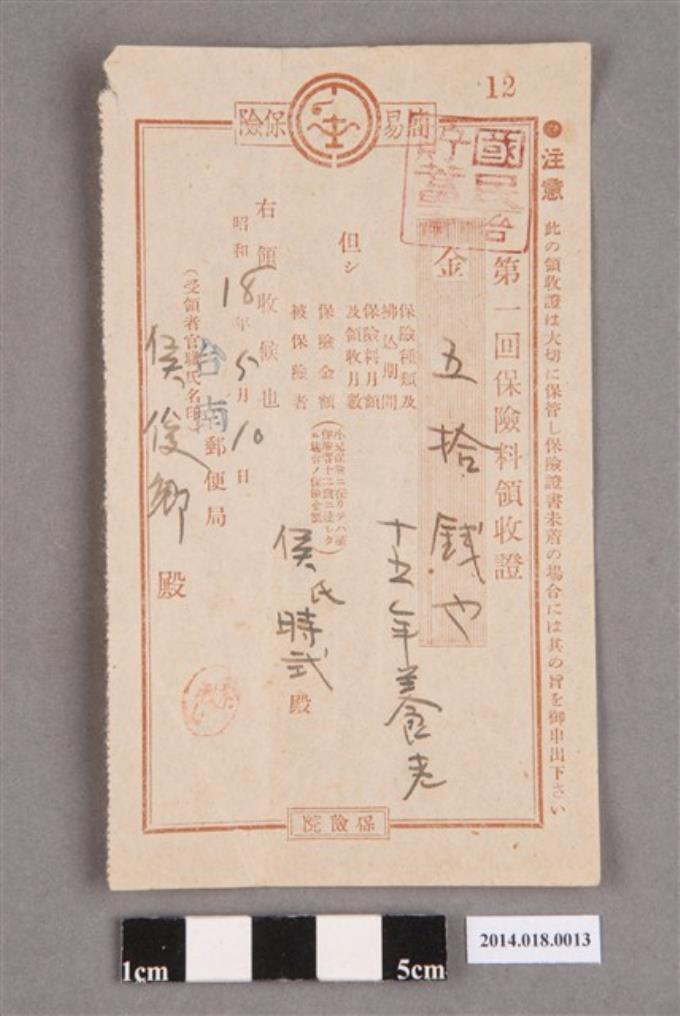 12
簡易保險
國民貯蓄
台
●注意 此の領收證は大切に保管し保險證書未着の場合には其の旨を御申出下さい
第一回保險料領收證
金 五拾錢也
保險種類及拂込期間 十五年養老
保險料月額及領收月數
但シ
保險金額
被保險者 侯氏時武 殿
右領收候也
昭和18年5月10日
台南郵便局
(受領者官職氏名印)
侯俊鄉 殿
保險院
1cm
5cm
2014.018.0013